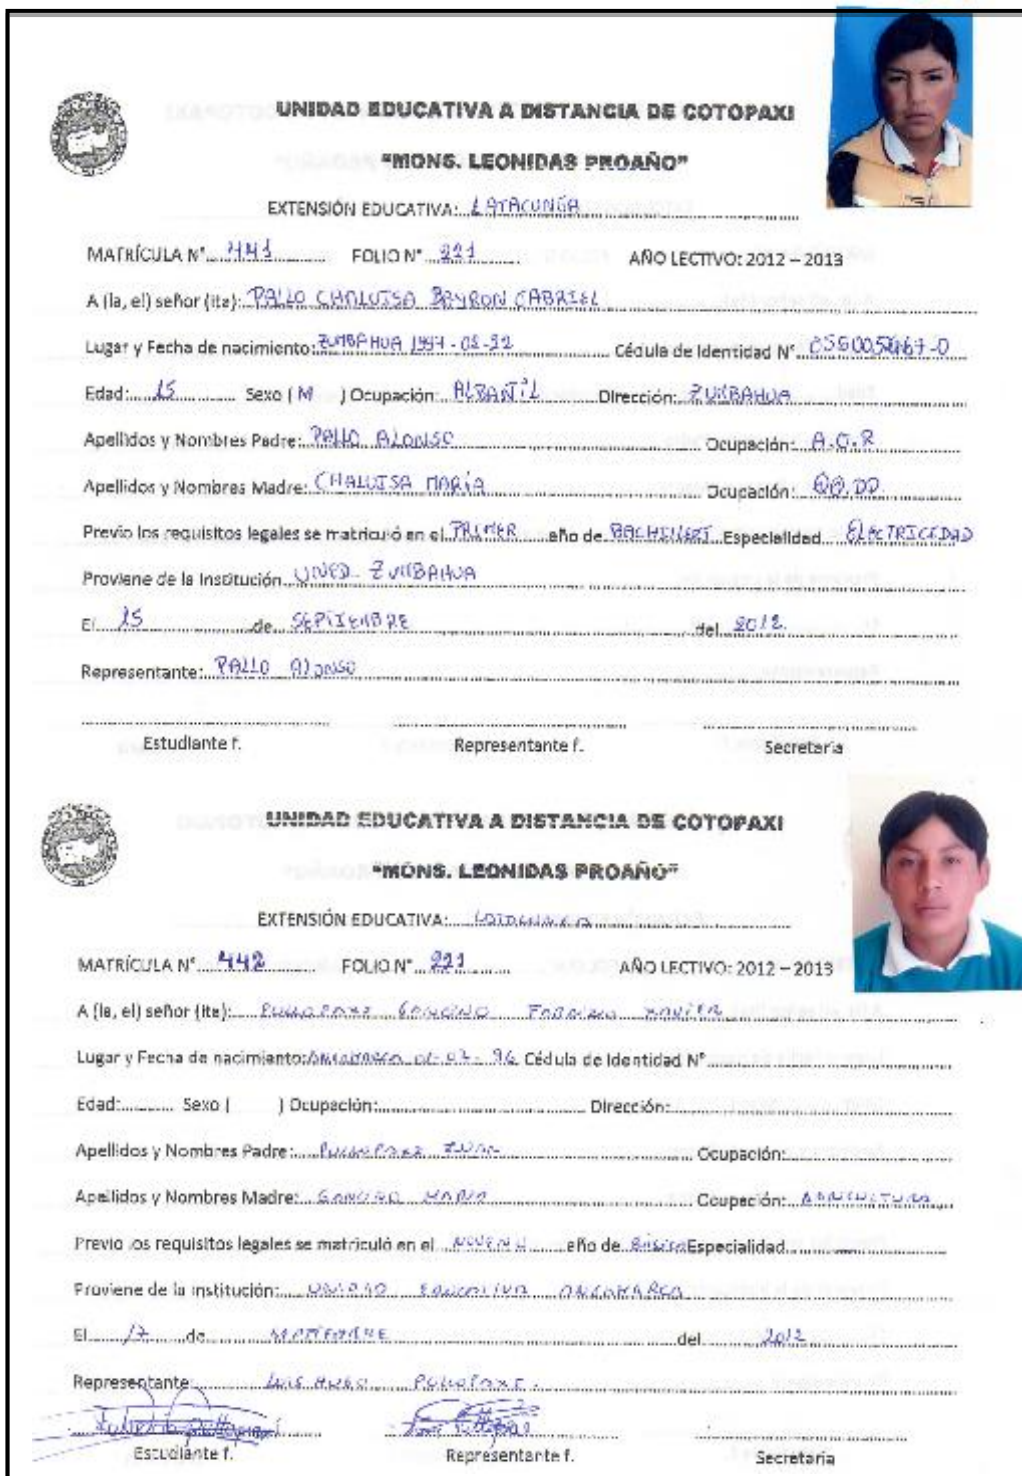 UNIDAD EDUCATIVA A DISTANCIA DE COTOPAXI
"MONS. LEONIDAS PROAÑO"
EXTENSIÓN EDUCATIVA: LATACUNGA
MATRÍCULA N° 441 FOLIO N° 221 AÑO LECTIVO: 2012 – 2013
A (la, el) señor (ita): PALLO CHALUISA BAYRON GABRIEL
Lugar y Fecha de nacimiento: ZUMBAHUA Cédula de Identidad N°
Edad: 15 Sexo ( M ) Ocupación: ALBAÑIL Dirección: ZUMBAHUA
Apellidos y Nombres Padre: PALLO ALONSO Ocupación:
Apellidos y Nombres Madre: CHALUISA MARÍA Ocupación: QQ.DD.
Previo los requisitos legales se matriculó en el PRIMER año de Especialidad ELECTRICIDAD
Proviene de la Institución UNED ZUMBAHUA
El 15 de SEPTIEMBRE del 2012
Representante: PALLO Alonso
Estudiante f. Representante f. Secretaria
UNIDAD EDUCATIVA A DISTANCIA DE COTOPAXI
"MONS. LEONIDAS PROAÑO"
EXTENSIÓN EDUCATIVA:
MATRÍCULA N° 442 FOLIO N° 221 AÑO LECTIVO: 2012 – 2013
A (la, el) señor (ita):
Lugar y Fecha de nacimiento: Cédula de Identidad N°
Edad: Sexo ( ) Ocupación: Dirección:
Apellidos y Nombres Padre: Ocupación:
Apellidos y Nombres Madre: MARIA Ocupación: AGRICULTURA
Previo los requisitos legales se matriculó en el NOVENO año de Básica Especialidad
Proviene de la institución: UNIDAD EDUCATIVA
El 17 de SEPTIEMBRE del 2012
Representante: LUIS HUGO
Estudiante f. Representante f. Secretaria